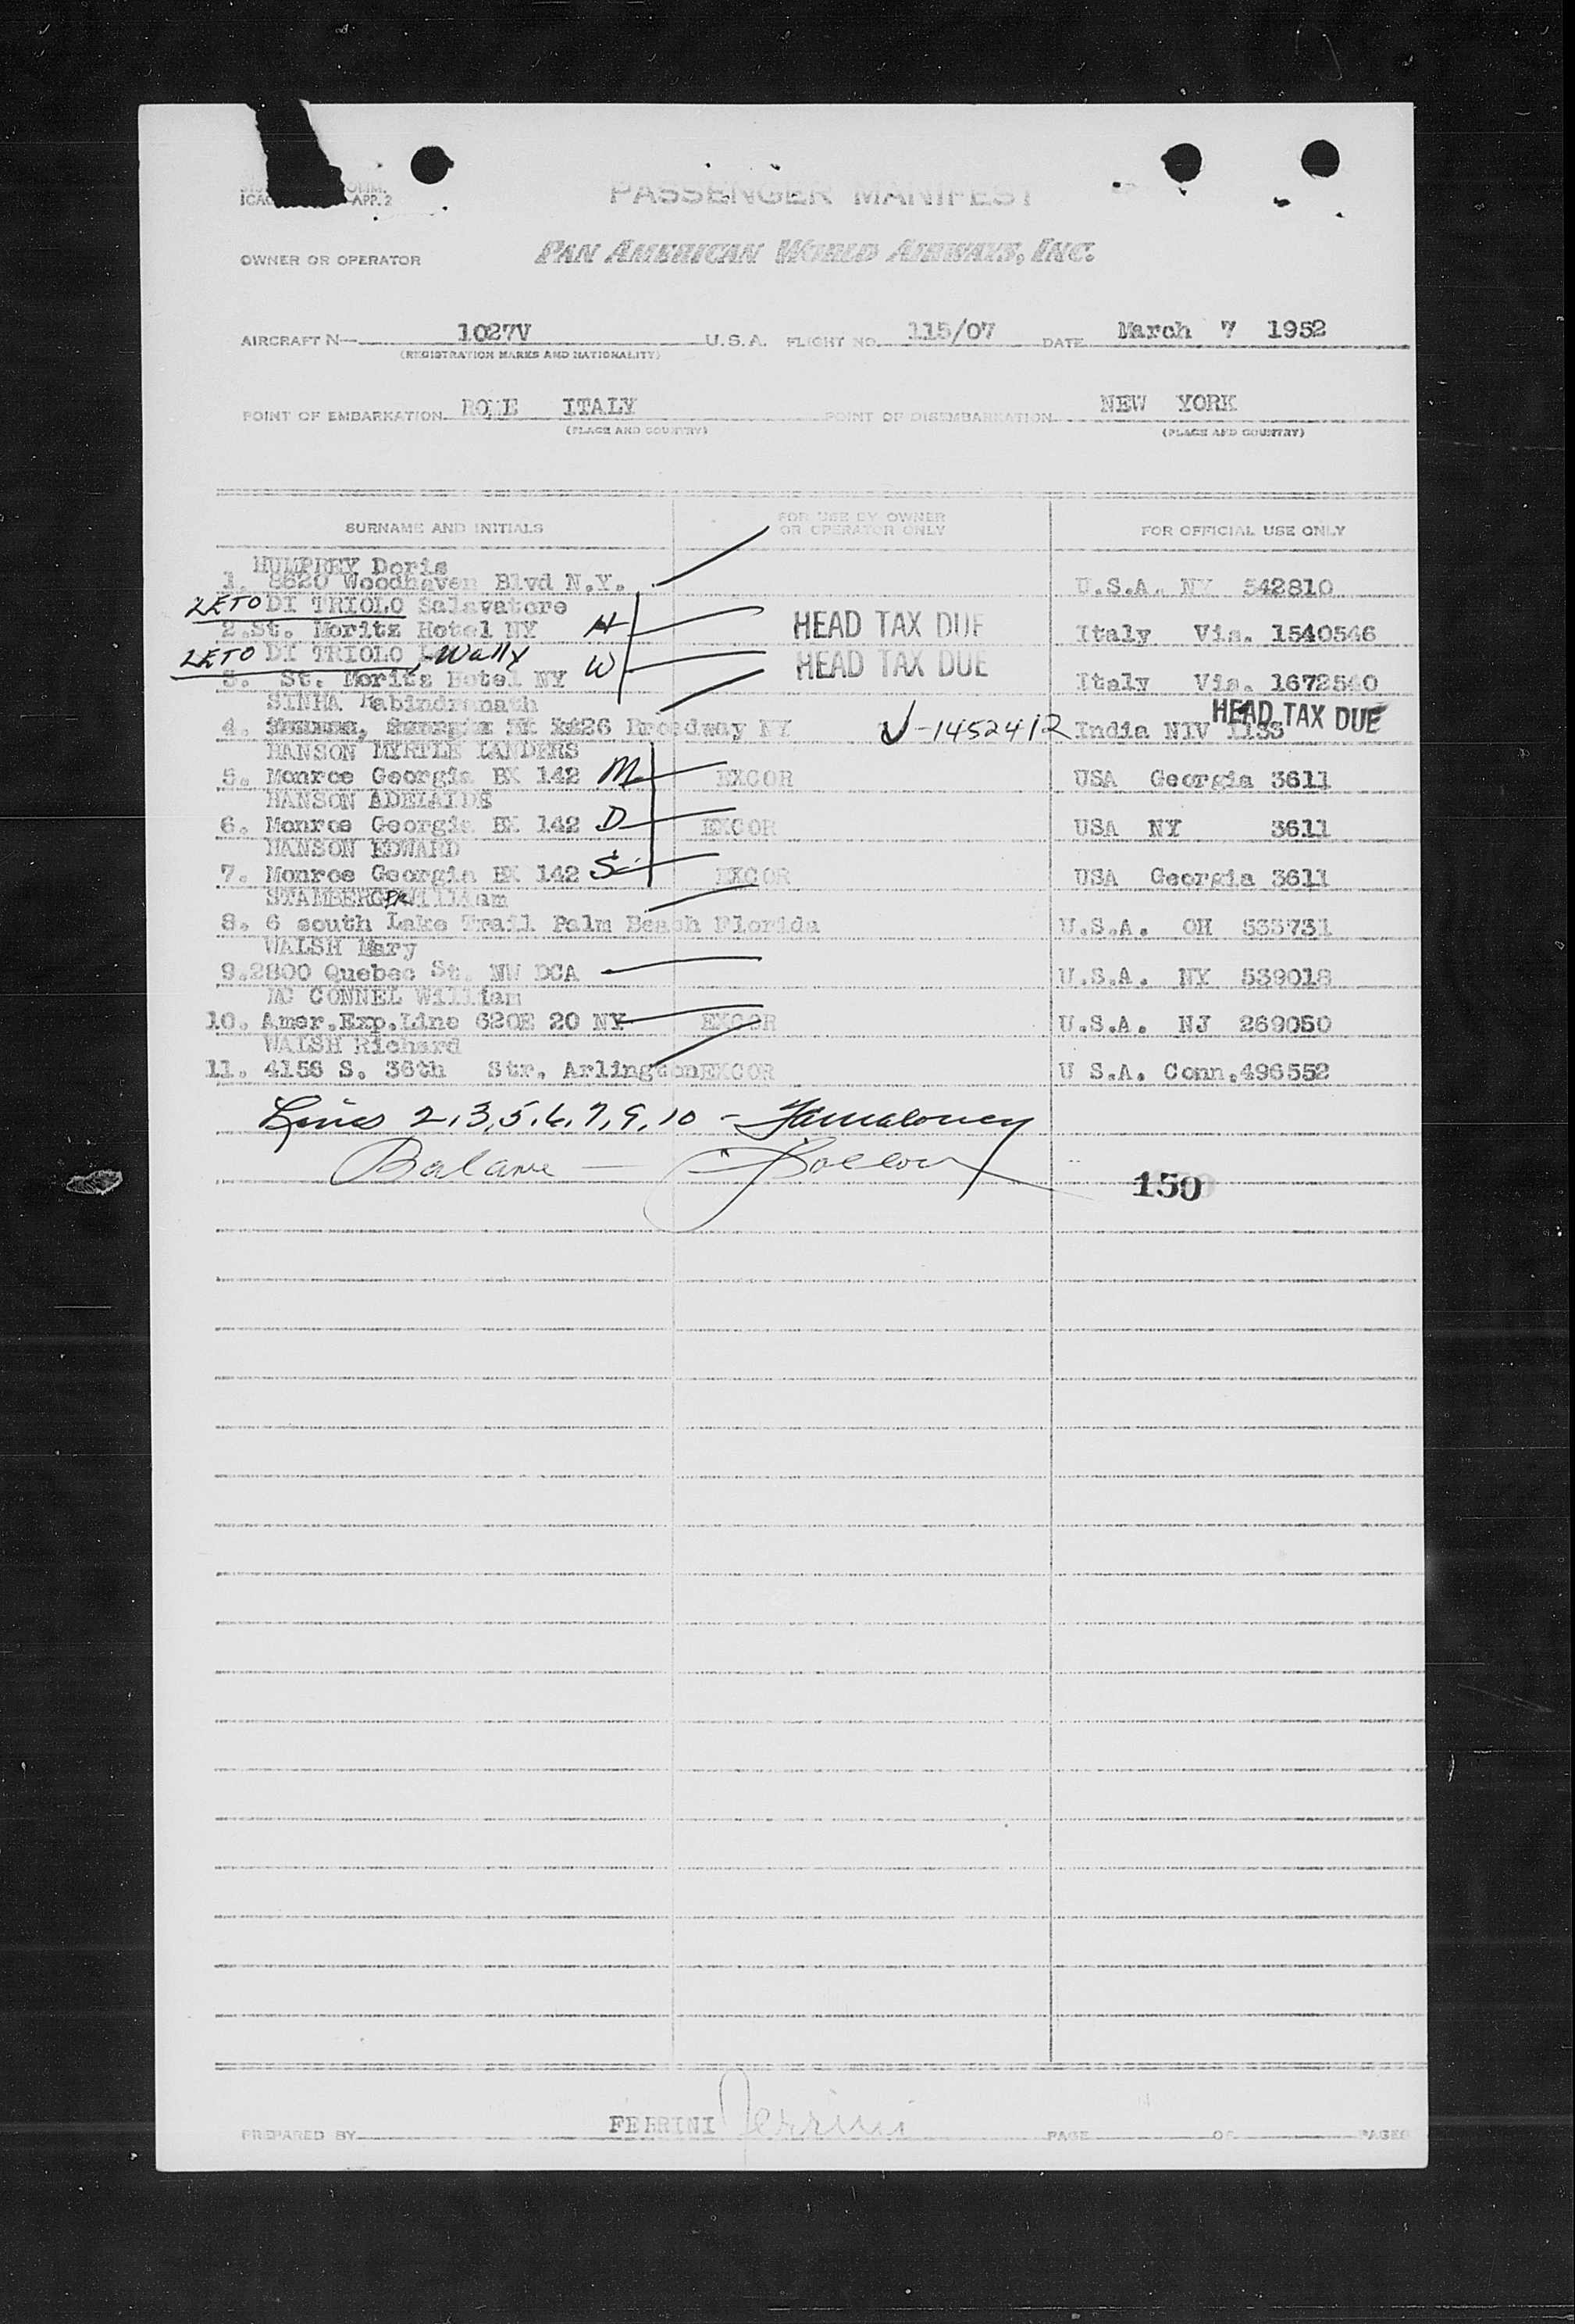 APP. 2
PASSENGER MANIFEST
OWNER OR OPERATOR PAN AMERICAN WORLD AIRWAYS, INC.
AIRCRAFT N— 1027V U.S.A. FLIGHT NO. 115/07 DATE March 7 1952
(REGISTRATION MARKS AND NATIONALITY)
POINT OF EMBARKATION ROME ITALY POINT OF DISEMBARKATION NEW YORK
(PLACE AND COUNTRY) (PLACE AND COUNTRY)
SURNAME AND INITIALS FOR USE BY OWNER OR OPERATOR ONLY FOR OFFICIAL USE ONLY
HUMPREY Doris
1. 8620 Woodhaven Blvd N.Y. U.S.A. NY 542810
LETO DI TRIOLO Salavatore
2. St. Moritz Hotel NY H HEAD TAX DUE Italy Vis. 1540546
LETO DI TRIOLO, Wally
3. St. Moritz Hotel NY W HEAD TAX DUE Italy Vis. 1672540
SINHA Rabindranath
4. 26 Broadway NY V-1452412 India NIV 1133 HEAD TAX DUE
HANSON MYRTLE LANDERS
5. Monroe Georgia BX 142 M EXCOR USA Georgia 3611
HANSON ADELAIDE
6. Monroe Georgia BX 142 D EXCOR USA NY 3611
HANSON EDWARD
7. Monroe Georgia BX 142 S EXCOR USA Georgia 3611
STAMBERGER William
8. 6 south Lake Trail Palm Beach Florida U.S.A. OH 533731
WALSH Mary
9. 2800 Quebec St. NW DCA U.S.A. NY 539018
MC CONNEL William
10. Amer.Exp.Line 620E 20 NY EXCOR U.S.A. NJ 269050
WALSH Richard
11. 4156 S. 36th Str. Arlington EXCOR U S.A. Conn. 496552
Lines 2,3,5,6,7,9,10 -
Balance —
150
PREPARED BY FERRINI Ferrini PAGE OF PAGES